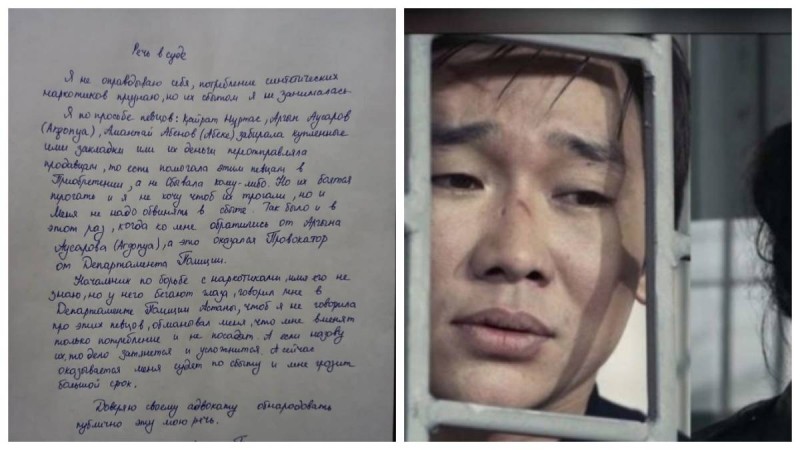 Речь в суде
Я не оправдываю себя, потребление синтетических
наркотиков признаю, но их сбытом я не занималась.
Я по просьбе певцов: Қайрат Нуртас, Арғын Аусаров
(Argonya), Амантай Абенов (Абеке) забирала купленные
ими закладки или их деньги переотправляла
продавцам, то есть помогала этим певцам в
Приобретении, а не Сбывала кому-либо. Но их боятся
трогать и я не хочу чтоб их трогали, но и
Меня не надо обвинять в сбыте. Так было и в
этот раз, когда ко мне обратились от Аргына
Аусарова (Argonya), а это оказался Провокатор
от Департамента Полиции.
Начальник по борьбе с наркотиками, имя его не
знаю, но у него бегают глаза, говорил мне в
Департаменте Полиции Астаны, чтоб я не говорила
про этих певцов, обманывал меня, что мне вменят
только потребление и не посадят. А если назову
их, то дело затянется и усложнится. А сейчас
оказывается меня судят по сбыту и мне грозит
большой срок.
Доверяю своему адвокату обнародовать
публично эту мою речь.